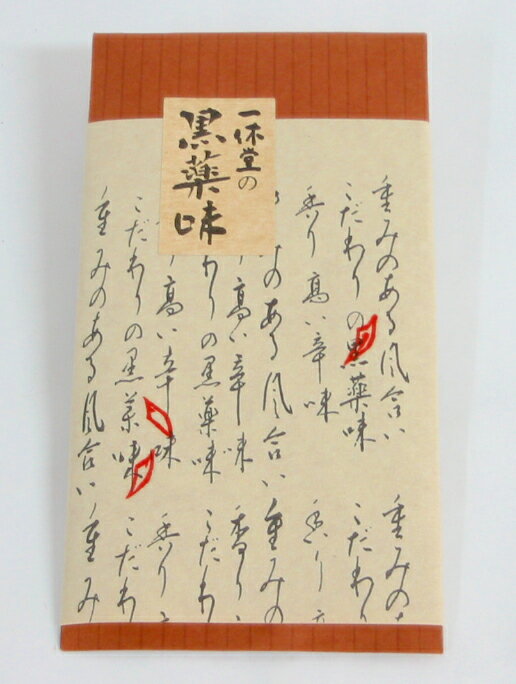 一休堂の
黒薬味
重みのある風合い 重みの
こだわりの黒薬味 こだわり
香り高い辛味 香り
のある風合い 重みの
高い辛味 香り
わりの黒薬味 こだわ
り高い辛味 香り
こだわりの黒薬味 こだわ
重みのある風合い 重み